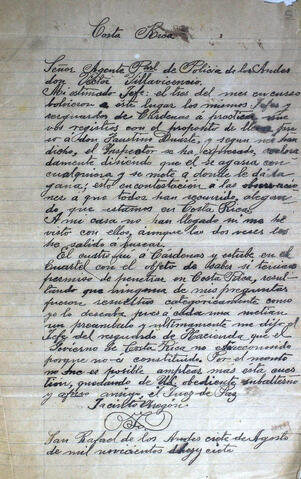 Costa Rica
Señor Agente Ppal de Policia de los Andes
don Villavicencio
Mi estimado Jefe: el tres del mes en curso
bolvieron a este lugar los mismos Jefes y
resguardos de Cárdenas a practicar nue
vos registros con el proposito de llevar pre
so a don Faustino y segun me han
dicho, el Inspector se ha expresado
damente diciendo que el se agarra con
cualquiera y se mete a donde le da la
gana, esto en contestacion a las observacio
nes a que todos han recurrido, alegan
do que estamos en Costa Rica.
A mi casa no han llegado ni me he
visto con ellos, aunque las dos veces los
he salido a buscar.
El cuatro fui a Cárdenas y estube en el
Cuartel con el objeto de saber si tenian
permiso de penetrar en Costa Rica, resul
tando que ninguna de mis preguntas
fueron resueltas categoricamente como
yo lo deseaba pues a cada una metian
un preambulo y ultimamente me dijo el
Jefe del resguardo de Hacienda que el
Gobierno de Costa Rica no es reconocido
porque no es constituido. Por el momento
no me es posible ampliar mas esta cues
tion, quedando de Ud. obediente subalterno
y afmo amigo, el Juez de Paz
Jacinto Obregón
San Rafael de los Andes ciete de Agosto
de mil novecientos diez y ciete